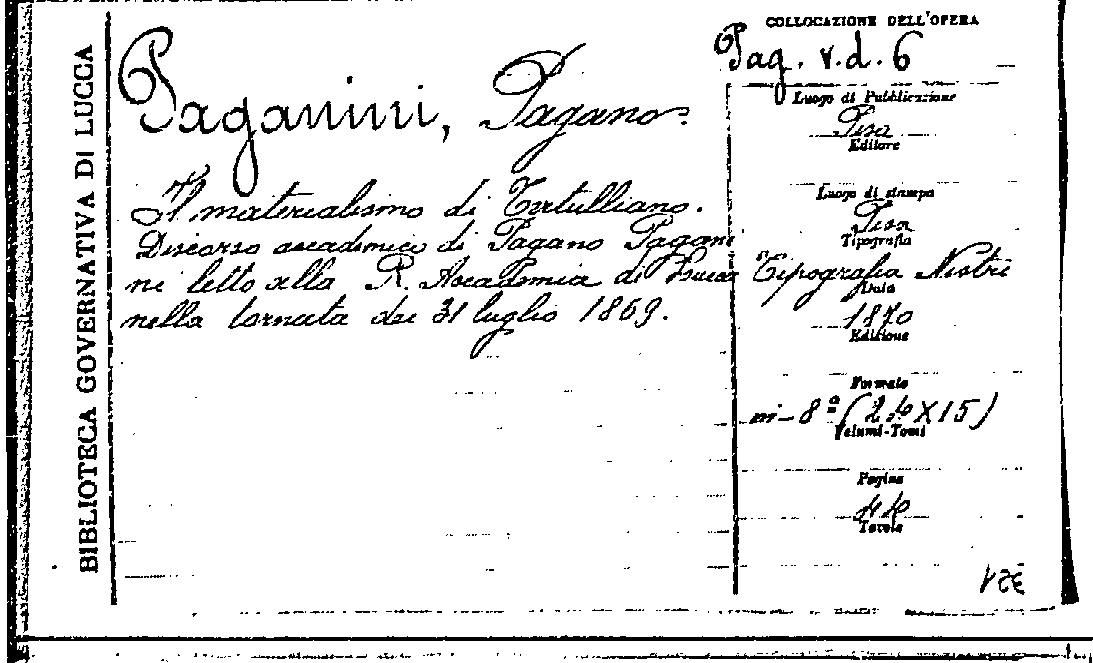 BIBLIOTECA GOVERNATIVA DI LUCCA
Paganini, Pagano.
Il materialismo di Tertulliano.
Discorso accademico di Pagano Pagani
ni letto alla R. Accademia di Lucca
nella tornata dei 31 luglio 1869.
COLLOCAZIONE DELL'OPERA
Pag. V.d. 6
Luogo di Pubblicazione
Pisa
Editore
Luogo di stampa
Pisa
Tipografia
Tipografia Nistri
Data
1870
Edizione
Formato
in-8º (24X15)
Volumi-Tomi
Pagine
44
Tavole